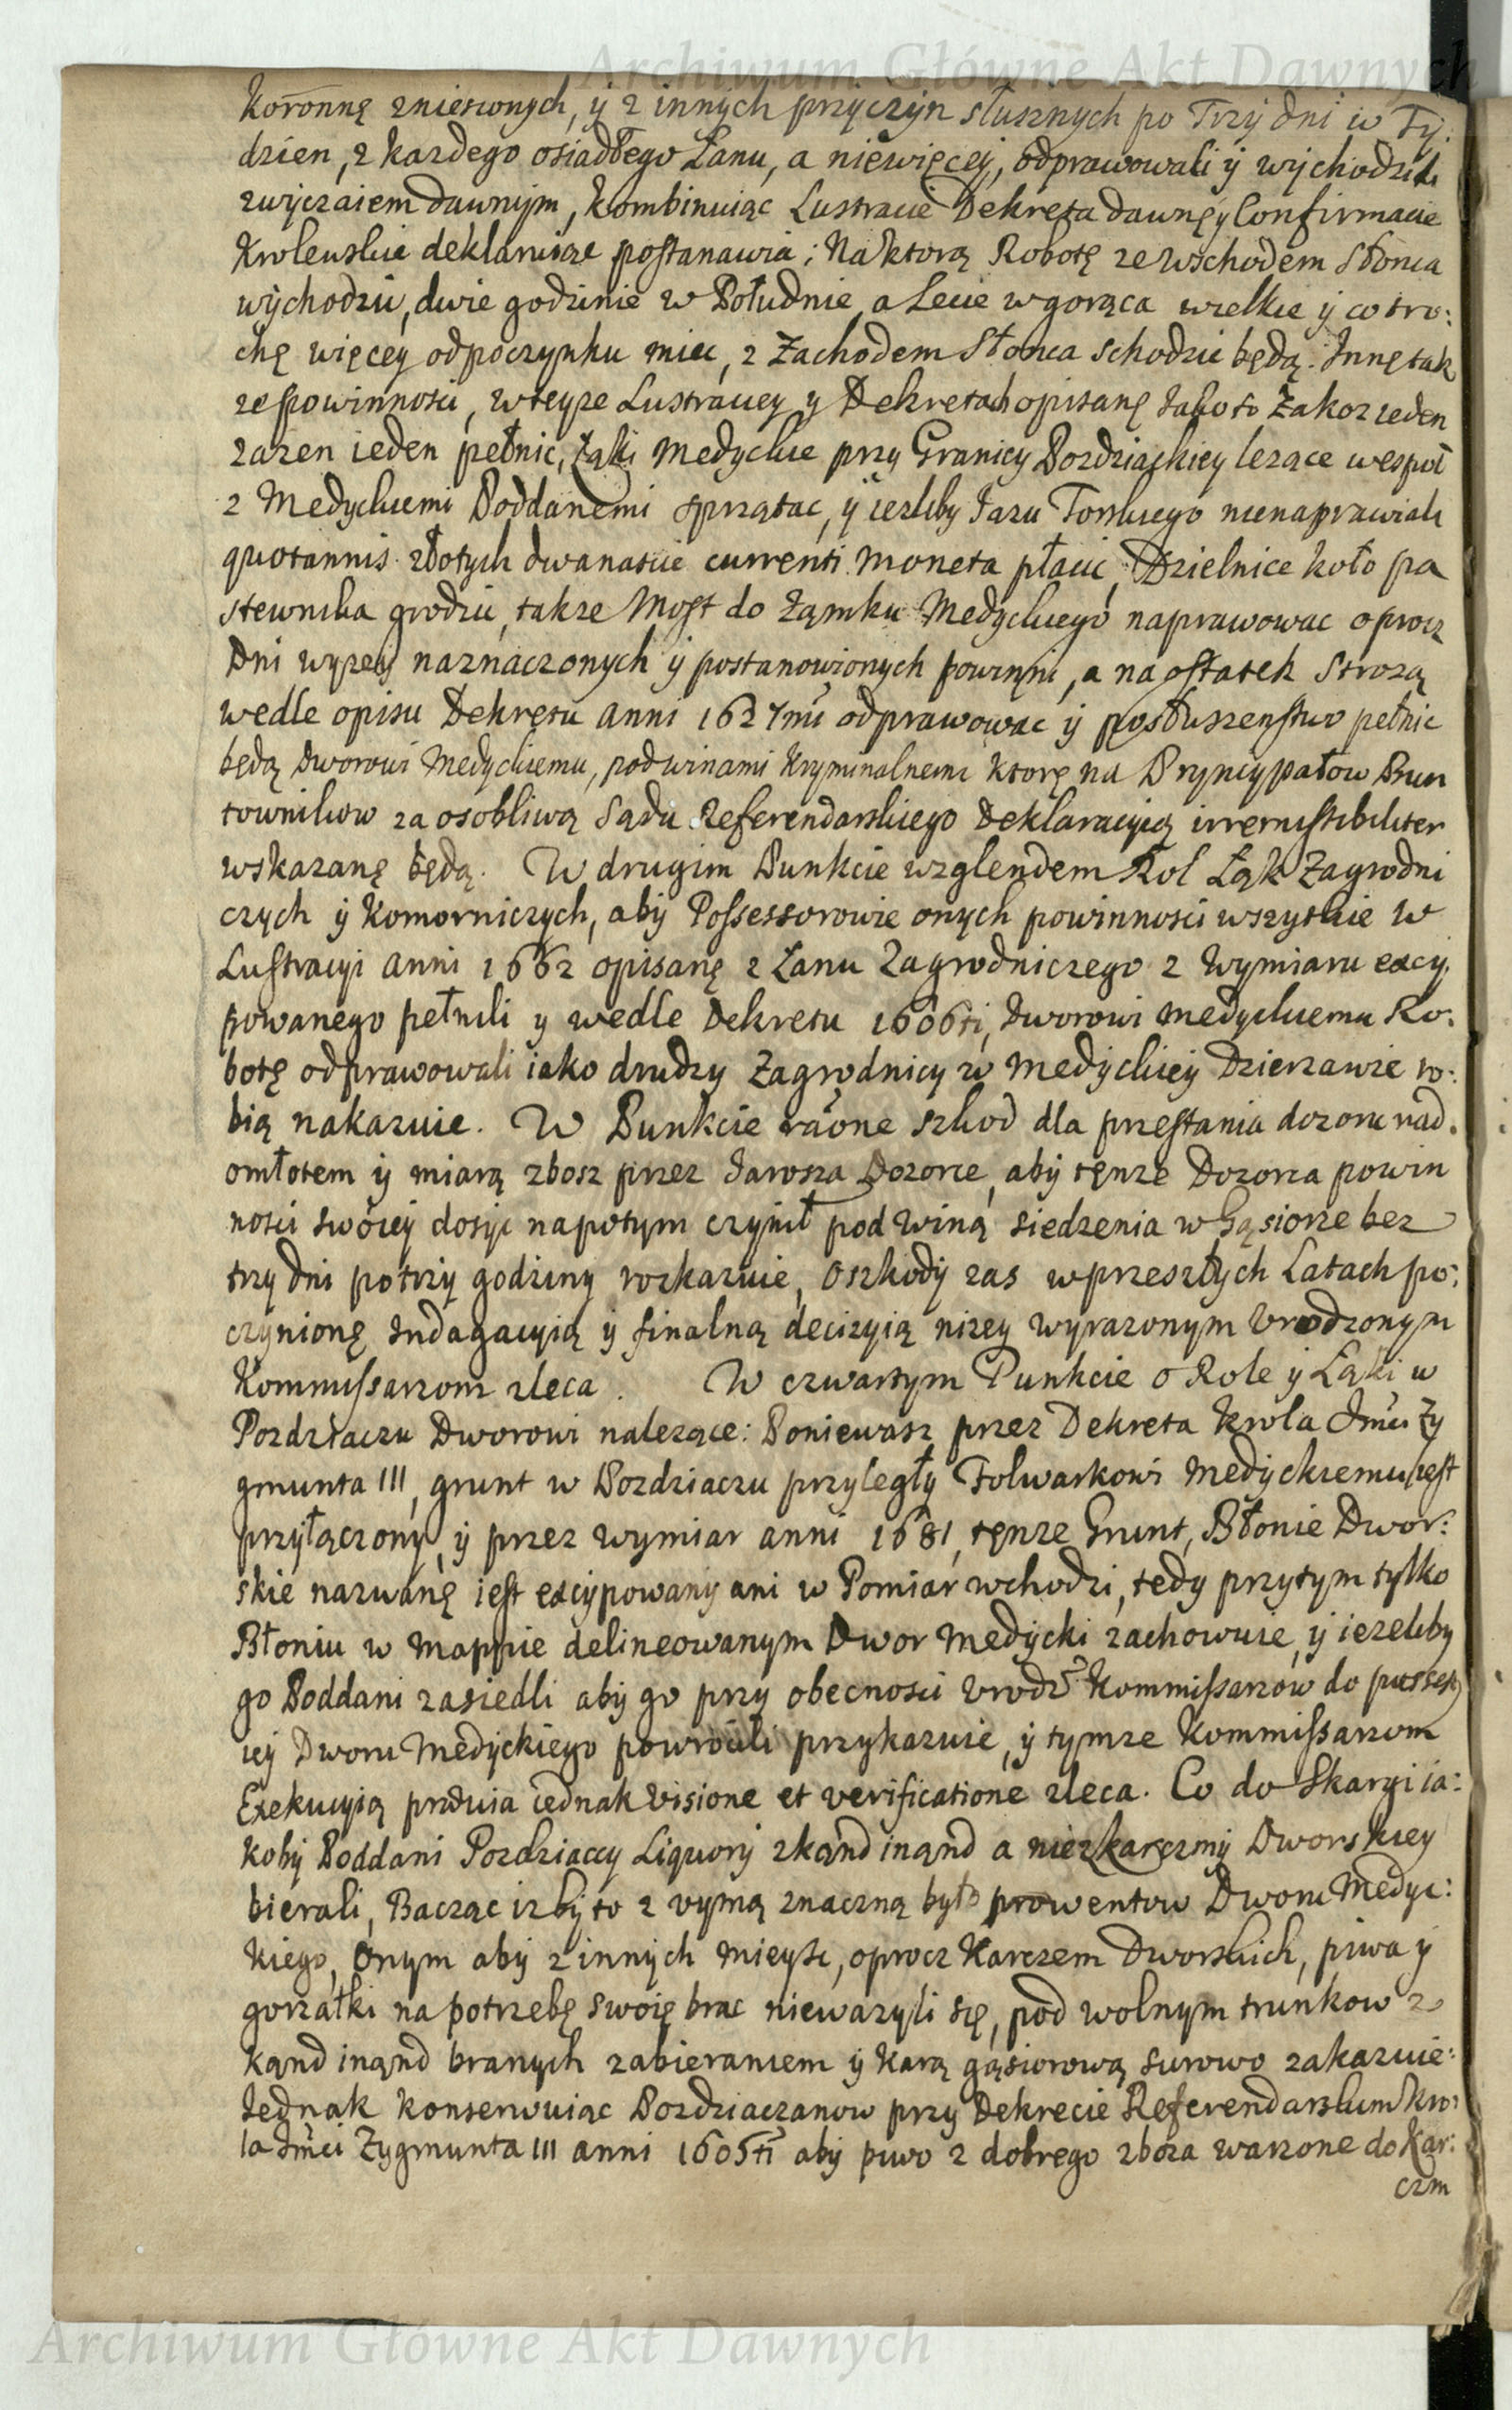 Archiwum Główne Akt Dawnych
Koronnę zniesionych, ÿ z innych przyczyn słusznych po Trzy dni w Ty:
dzien, z kazdego osiadłego Łanu, a niewięceÿ, odprawowali ÿ wychodzili
zwyczaiem dawnym, kombinuiąc Lustracie Dekreta dawnę y Confirmacie
Krolewskie deklaruiąc postanawia; Na ktorą Robotę ze wschodem Słonca
wychodzic, dwie godzinie w Południe, a Lecie w gorąca wielkie ÿ co tro:
chę więcey odpoczynku miec, z Zachodem Słonca schodzic będą. Innę tak
ze powinnosci, w teyze Lustracyey y Dekretach opisanę Jako to Zakoz ieden
zazen ieden pełnic, Łąki Medyckie przy Granicy Pozdziackiey lezące wespoł
z Medyckiemi Poddanemi sprzątac, ÿ iezliby Jazu Torskiego nienaprawiali
quotannis złotych dwanascie currenti moneta płacic, Dzielnice koło pa
stewnika grodzic, takze Most do Zamku Medyckiego naprawowac oprocz
Dni wyzeÿ naznaczonych ÿ postanowionych powinni, a na ostatek Strozą
wedle opisu Dekretu anni 1627mi odprawowac ÿ posłuszenstwo pełnic
będą Dworowi Medyckiemu, pod winami kryminalnemi ktorę na Pryncypałow Bun
townikow za osobliwą Sądu Referendarskiego Deklaracyią irremissibiliter
wskazanę będą. W drugim Punkcie wzglendem Rol Łąk Zagrodni
czych ÿ Komorniczych, abÿ Possessorowie onych powinnosci wszytkie w
Lustracyi anni 1662 opisanę z Łanu Zagrodniczego z Wymiaru excÿ
powanego pełnili y wedle Dekretu 1606ti, Dworowi Medyckiemu Ro:
botę odprawowali iako drudzy Zagrodnicy w Medyckiey Dzierzawie ro:
bią nakazuie. W Punkcie raóne szkod dla przestania dozoru nad
omłotem ÿ miarą zbosz przez Jarosza Dozorce, abÿ tęnze Dozorca powin
nosci swoieÿ dosyc napotym czynił pod winą siedzenia w Gąsiorze bez
trzy dni po trzy godziny rozkazuie, O szkody zas w przeszłych Latach po:
czynionę Indagacyią ÿ finalną decizyią nizey wyrazonym Urodzonym
Kommissarzom zleca. W czwartym Punkcie o Role ÿ Łąki w
Pozdziaczu Dworowi nalezące: Poniewasz przez Dekreta Krola Jmci Zy
gmunta III, grunt w Pozdziaczu przyległy Folwarkowi Medyckiemu iest
przyłączony, ÿ przez wymiar anni 1681, tęnze Grunt, Błonie Dwor:
skie nazwanę iest excypowany ani w Pomiar wchodzi, tedy przytym tylko
Błoniu w mappie delineowanym Dwor Medycki zachowuie, ÿ iezeliby
go Poddani zasiedli abÿ go przy obecnosci Urodz. Kommissarzow do possess
ieÿ Dworu Medyckiego powrocili przykazuie, ÿ tymze Kommissarzom
Exekucyią prævia iednak visione et verificatione zleca. Co do Skargi ia:
kobÿ Poddani Pozdziaccy Liquory zkąnd inąnd a niezkarczmÿ Dworskiey
bierali, Bacząc izby to z vymą znaczną było prowentow Dworu Medyc:
kiego, Onym abÿ z innych mieysc, oprocz Karczem Dworskich, piwa ÿ
gorzałki na potrzebę swoię brac niewazyli się, pod wolnym trunkow z
kąnd inąnd branych zabieraniem ÿ karą gąsiorową surowo zakazuie:
Jednak konserwuiąc Pozdziaczanow przy Dekrecie Referendarskim Kro:
la Jmci Zygmunta III anni 1605ti abÿ piwo z dobrego zboza warzone do Kar:
czm
Archiwum Główne Akt Dawnych